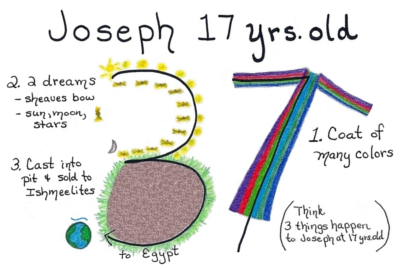 Joseph 17 yrs. old
2. 2 dreams
- sheaves bow
- sun, moon,
stars
3. Cast into
pit & sold to
Ishmeelites
to Egypt
1. Coat of
many colors
(Think
3 things happen
to Joseph at 17 yrs. old)